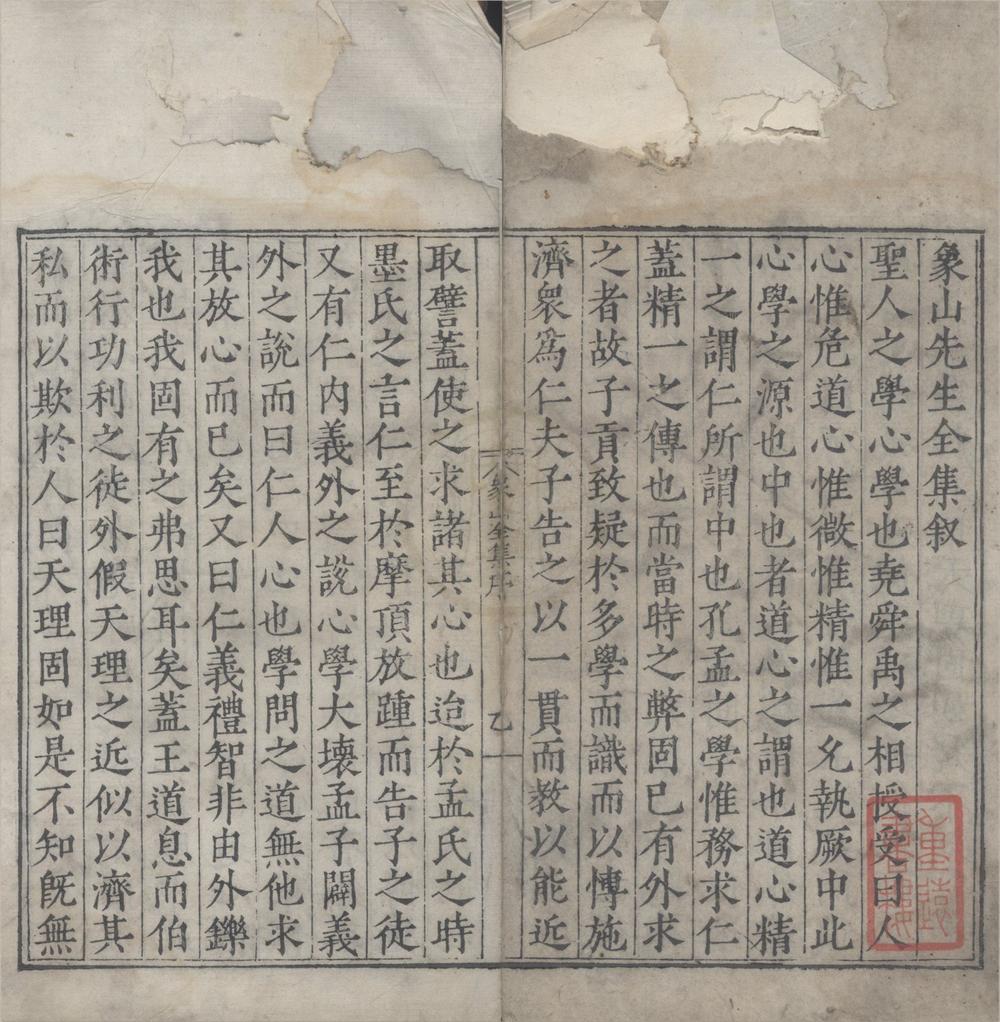 象山先生全集叙
聖人之學心學也堯舜禹之相授受曰人
心惟危道心惟微惟精惟一允執厥中此
心學之源也中也者道心之謂也道心精
一之謂仁所謂中也孔孟之學惟務求仁
蓋精一之傳也而當時之弊固已有外求
之者故子貢致疑於多學而識而以愽施
濟衆爲仁夫子告之以一貫而教以能近
象山全集序
乙
取譬蓋使之求諸其心也迨於孟氏之時
墨氏之言仁至於摩頂放踵而告子之徒
又有仁内義外之說心學大壞孟子闢義
外之說而曰仁人心也學問之道無他求
其放心而已矣又曰仁義禮智非由外鑠
我也我固有之弗思耳矣蓋王道息而伯
術行功利之徒外假天理之近似以濟其
私而以欺於人曰天理固如是不知旣無